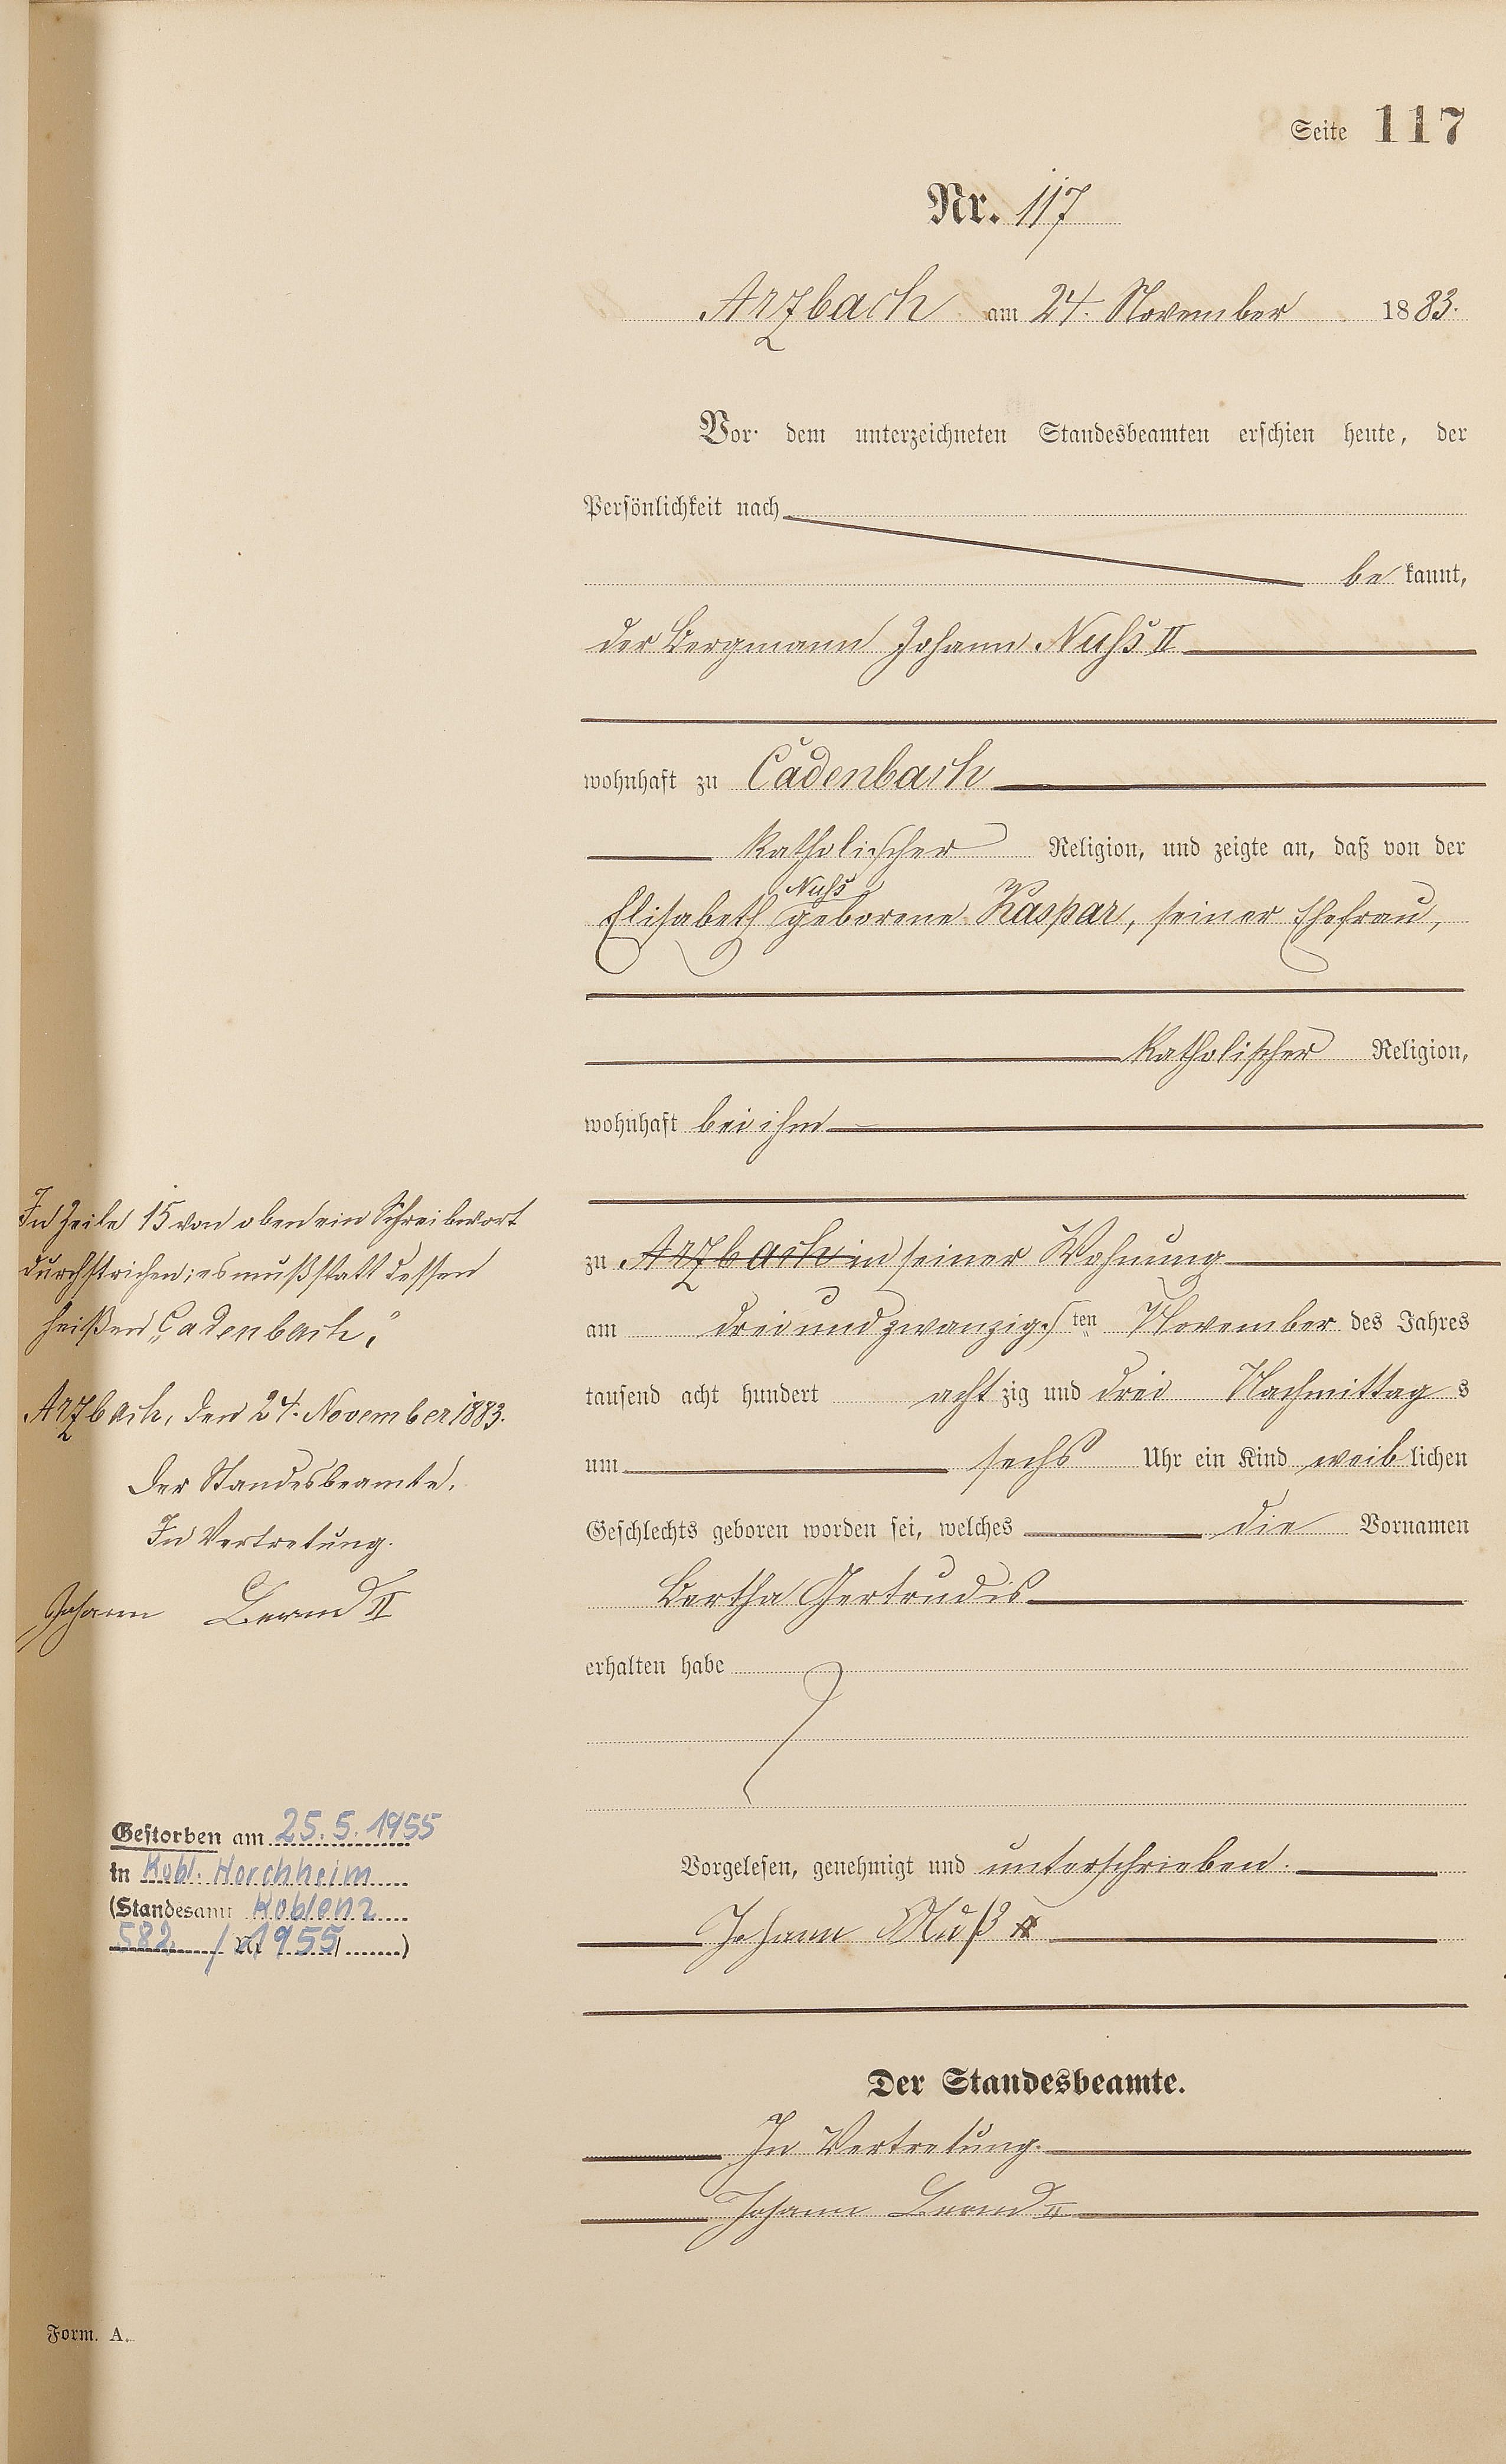 Seite 117
Nr. 117
Arzbach am 24. November 1883.
Vor dem unterzeichneten Standesbeamten erschien heute, der
Persönlichkeit nach
be kannt,
der Bergmann Johann Nuhs II
wohnhaft zu Cadenbach
katholischer Religion, und zeigte an, daß von der
Nuhs
Elisabeth geborene Kaspar, seiner Ehefrau,
katholischer Religion,
wohnhaft bei ihm
zu Arzbach in seiner Wohnung
am drei und zwanzig ten November des Jahres
tausend acht hundert acht zig und drei Nachmittag s
um sechs Uhr ein Kind weib lichen
Geschlechts geboren worden sei, welches die Vornamen
Bertha Gertrudis
erhalten habe
Vorgelesen, genehmigt und unterschrieben.
Johann Nuß II
Der Standesbeamte.
In Vertretung.
Johann Bernd II
In Zeile 15 von oben ein Schreibwort
durchstrichen; es muß statt dessen
heißen „Cadenbach“.
Arzbach, den 24. November 1883.
Der Standesbeamte.
In Vertretung.
Johann Bernd II
Gestorben am 25.5.1955
in Kobl. Horchheim
(Standesamt Koblenz
582 / Nr 1955)
Form. A.